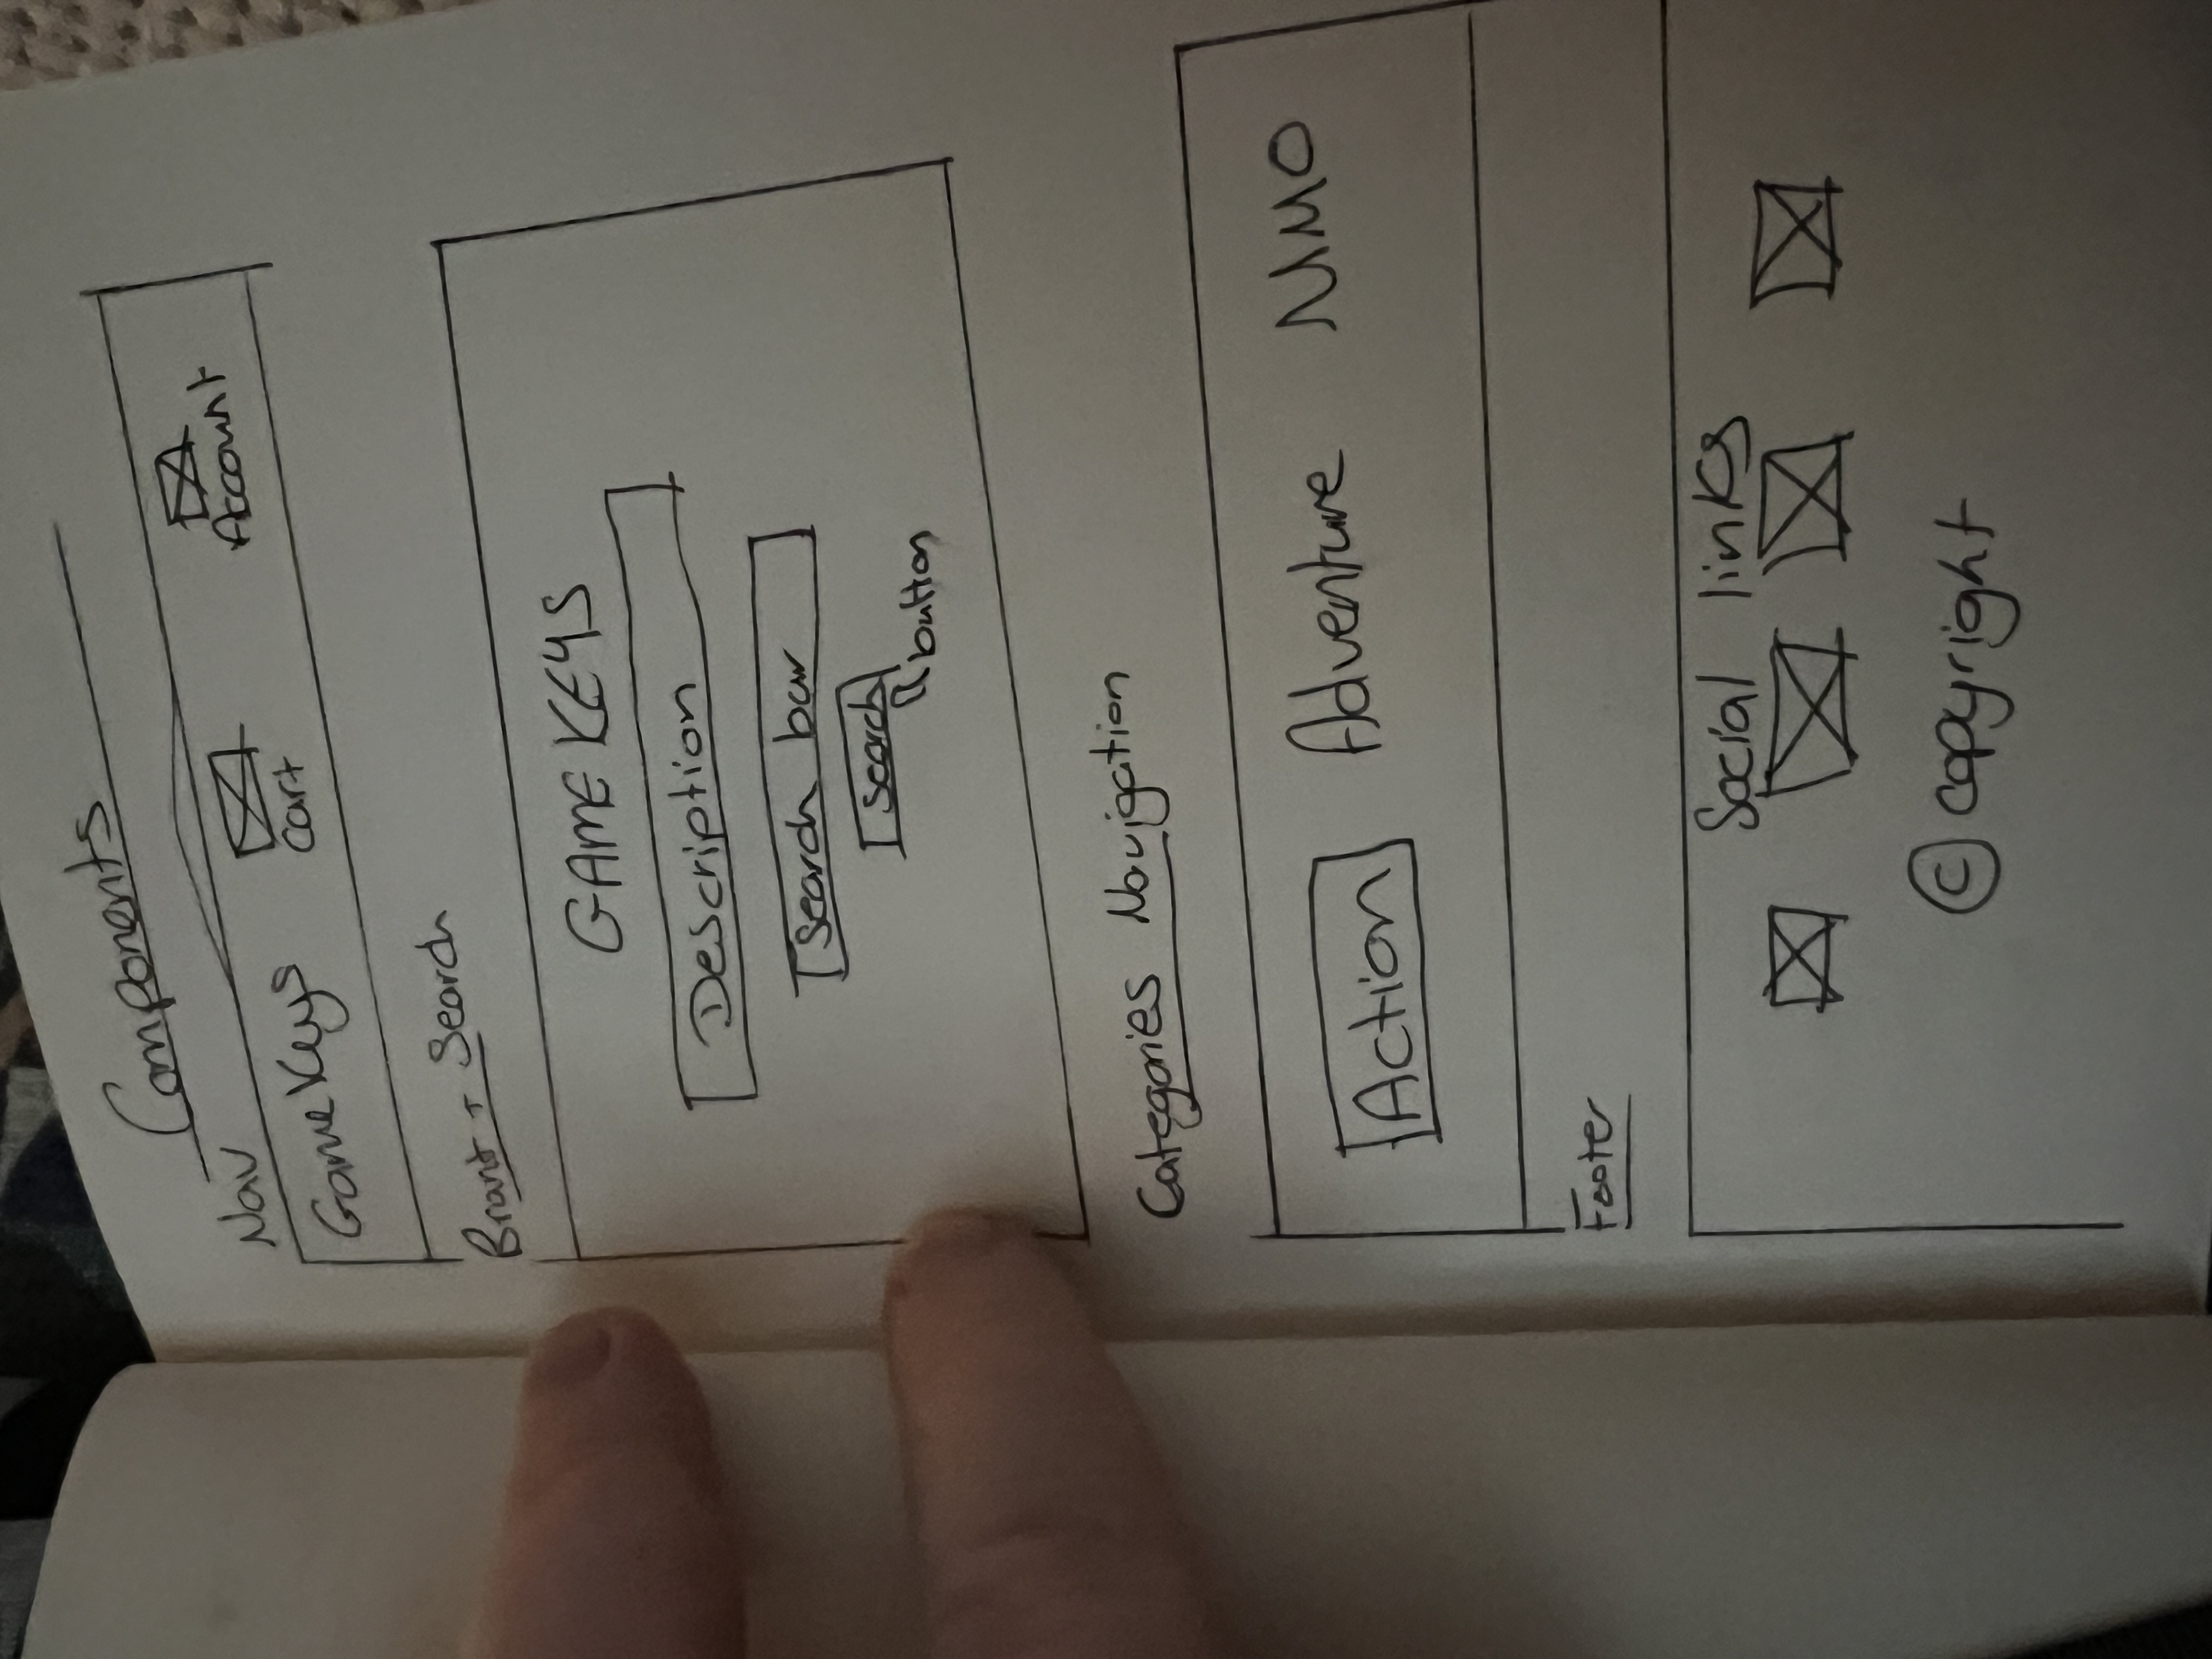 Components
Nav
GameKeys
Cart
Account
Brant + Search
GAME KEYS
Description
Search bar
Search
button
Categories Navigation
Action Adventure MMO
Footer
Social links
© copyright